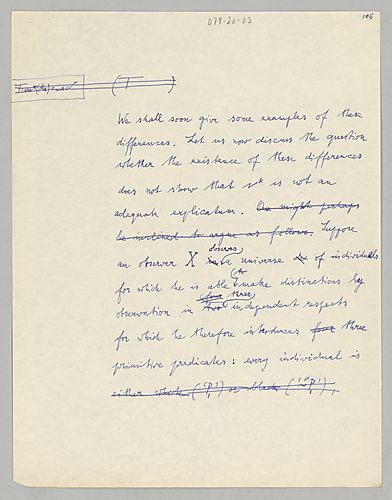 079-20-03
106
(T )
We shall soon give some examples of these
differences. Let us now discuss the question
whether the existence of these differences
does not show that is not an
adequate explicatum. One might perhaps
be inclined to argue as follows. Suppose
observes
an observer X in a universe of individuals
for which he is able to make distinctions by
four three
observation in two independent respects
for which he therefore introduces four three
primitive predicates: every individual is
either white ('P₁') or black ('~P₁'),